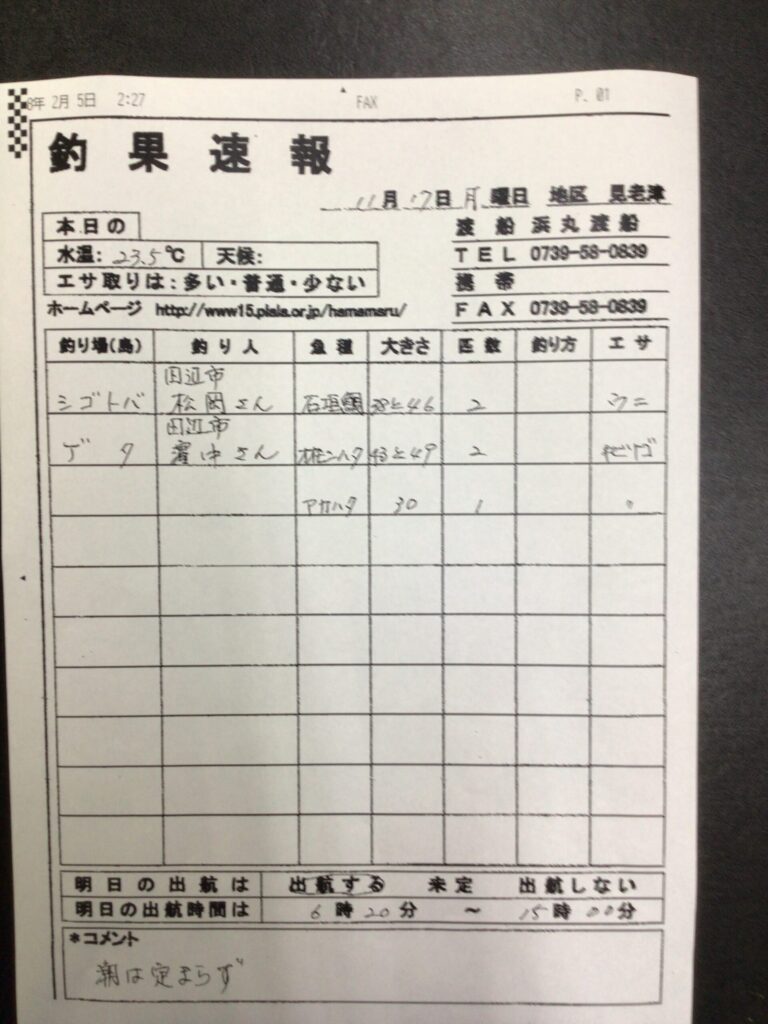 8年 2月 5日 2:27 FAX P. 01
釣果速報
11月17日月曜日 地区 見老津
本日の
水温: 23.5℃ 天候:
エサ取りは:多い・普通・少ない
ホームページ http://www15.plala.or.jp/hamamaru/
渡船 浜丸渡船
TEL 0739-58-0839
携帯
FAX 0739-58-0839
釣り場(島) 釣り人 魚種 大きさ 匹数 釣り方 エサ
田辺市
シゴトバ 松岡さん 石垣鯛 38と46 2 ウニ
田辺市
ゲタ 濱中さん 43と49 2
アカハタ 30 1 〃
明日の出航は 出航する 未定 出航しない
明日の出航時間は 6時20分 ~ 15時00分
*コメント
潮は定まらず